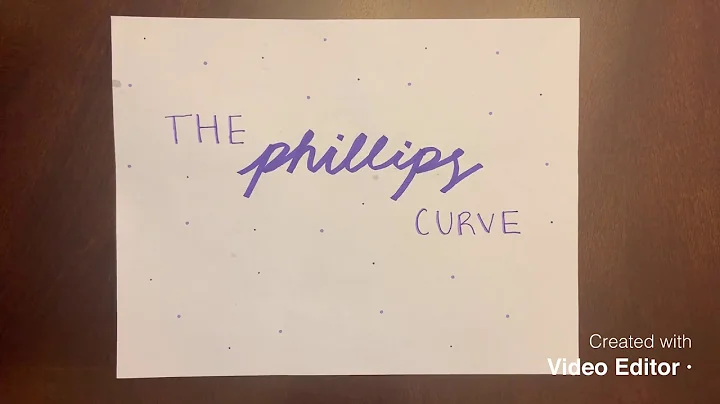 THE
phillips
CURVE
Created with
Video Editor •